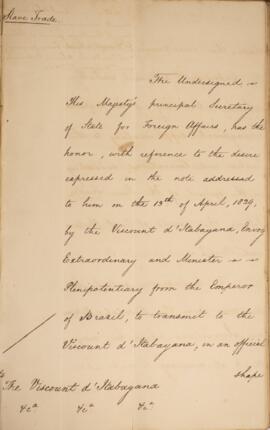 Slave Trade.
The Undersigned
His Majesty's principal Secretary
of State for Foreign Affairs, has the
honor, with reference to the desire
expressed in the note addressed
to him on the 13th of April, 1829,
by the Viscount d'Itabayana, Envoy
Extraordinary and Minister
Plenipotentiary from the Emperor
of Brazil, to transmit to the
Viscount d'Itabayana, in an official
shape
The Viscount d'Itabayana
&ca &ca &ca